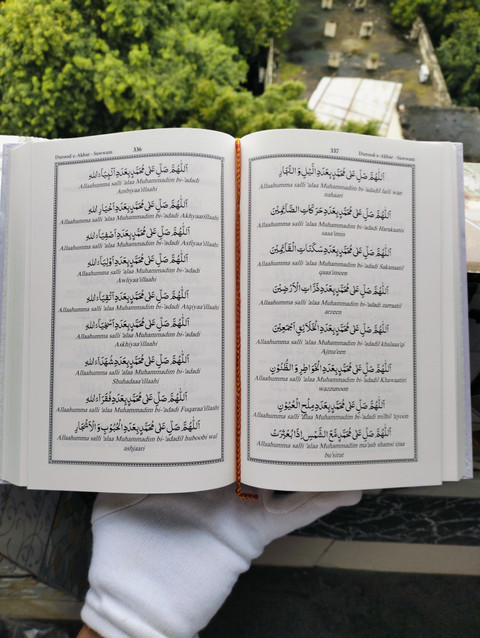 336
Durood e Akbar - Sawwam
اَللّٰهُمَّ صَلِّ عَلٰى مُحَمَّدٍۭ بِعَدَدِ اَنْبِيَآءِ اللهِ
Allaahumma salli 'alaa Muhammadim bi-'adadi
Ambiyaa'illaahi
اَللّٰهُمَّ صَلِّ عَلٰى مُحَمَّدٍۭ بِعَدَدِ اَخْيَارِ اللهِ
Allaahumma salli 'alaa Muhammadim bi-'adadi Akhyaarillaahi
اَللّٰهُمَّ صَلِّ عَلٰى مُحَمَّدٍۭ بِعَدَدِ اَصْفِيَآءِ اللهِ
Allaahumma salli 'alaa Muhammadim bi-'adadi Asfiyaa'illaahi
اَللّٰهُمَّ صَلِّ عَلٰى مُحَمَّدٍۭ بِعَدَدِ اَوْلِيَآءِ اللهِ
Allaahumma salli 'alaa Muhammadim bi-'adadi
Awliyaa'illaahi
اَللّٰهُمَّ صَلِّ عَلٰى مُحَمَّدٍۭ بِعَدَدِ اَتْقِيَآءِ اللهِ
Allaahumma salli 'alaa Muhammadim bi-'adadi Atqiyaa'illaahi
اَللّٰهُمَّ صَلِّ عَلٰى مُحَمَّدٍۭ بِعَدَدِ اَسْخِيَآءِ اللهِ
Allaahumma salli 'alaa Muhammadim bi-'adadi
Askhiyaa'illaahi
اَللّٰهُمَّ صَلِّ عَلٰى مُحَمَّدٍۭ بِعَدَدِ شُهَدَآءِ اللهِ
Allaahumma salli 'alaa Muhammadim bi-'adadi
Shuhadaa'illaahi
اَللّٰهُمَّ صَلِّ عَلٰى مُحَمَّدٍۭ بِعَدَدِ فُقَرَآءِ اللهِ
Allaahumma salli 'alaa Muhammadim bi-'adadi Fuqaraa'illaahi
اَللّٰهُمَّ صَلِّ عَلٰى مُحَمَّدٍۭ بِعَدَدِ الْحُبُوْبِ وَالْاَشْجَارِ
Allaahumma salli 'alaa Muhammadim bi-'adadil huboobi wal
ashjaari
337
Durood e Akbar - Sawwam
اَللّٰهُمَّ صَلِّ عَلٰى مُحَمَّدٍۭ بِعَدَدِ الَّيْلِ وَ النَّهَارِ
Allaahumma salli 'alaa Muhammadim bi-'adadil laili wan
nahaari
اَللّٰهُمَّ صَلِّ عَلٰى مُحَمَّدٍۭ بِعَدَدِ حَرَكَاتِ الصَّآئِمِيْنَ
Allaahumma salli 'alaa Muhammadim bi-'adadi Harakaatis
saaa'imin
اَللّٰهُمَّ صَلِّ عَلٰى مُحَمَّدٍۭ بِعَدَدِ سَكَنَاتِ الْقَآئِمِيْنَ
Allaahumma salli 'alaa Muhammadim bi-'adadi Sakanaatil
qaaa'imeen
اَللّٰهُمَّ صَلِّ عَلٰى مُحَمَّدٍۭ بِعَدَدِ ذَرَّاتِ الْاَرْضِيْنَ
Allaahumma salli 'alaa Muhammadim bi-'adadi zarraatil
arzeen
اَللّٰهُمَّ صَلِّ عَلٰى مُحَمَّدٍۭ بِعَدَدِ الْخَلَآئِقِ اَجْمَعِيْنَ
Allaahumma salli 'alaa Muhammadim bi-'adadil khilaaa'iqi
Ajma'een
اَللّٰهُمَّ صَلِّ عَلٰى مُحَمَّدٍۭ بِعَدَدِ الْخَوَاطِرِ وَ الظُّنُوْنِ
Allaahumma salli 'alaa Muhammadim bi-'adadil Khawaatiri
wazzunoon
اَللّٰهُمَّ صَلِّ عَلٰى مُحَمَّدٍۭ بِعَدَدِ مِلْحِ الْعُيُوْنِ
Allaahumma salli 'alaa Muhammadim bi-'adadi milhil 'uyoon
اَللّٰهُمَّ صَلِّ عَلٰى مُحَمَّدٍ مَّعَ الشَّمْسِ اِذَا بُعْثِرَتْ
Allaahumma salli 'alaa Muhammadim ma'ash shamsi izaa
bu'sirat